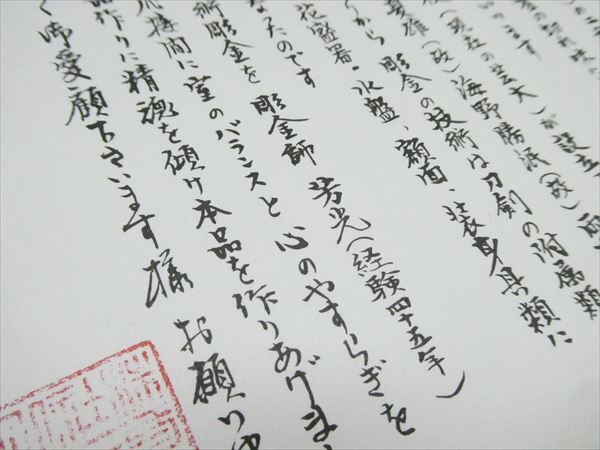 います
(現在の芸大)が設立
雄(故)海野勝珉(故)両
から 彫金の技術は刀剣の附属類
花盛器・水盤、額面、装身具類に
なったのです
術彫金を 彫金師 芳光(経験四十五年)
接間に室のバランスと心のやすらぎを
品作りに精魂を傾け本品を作りあげま
く御愛顧下さいます様 お願い